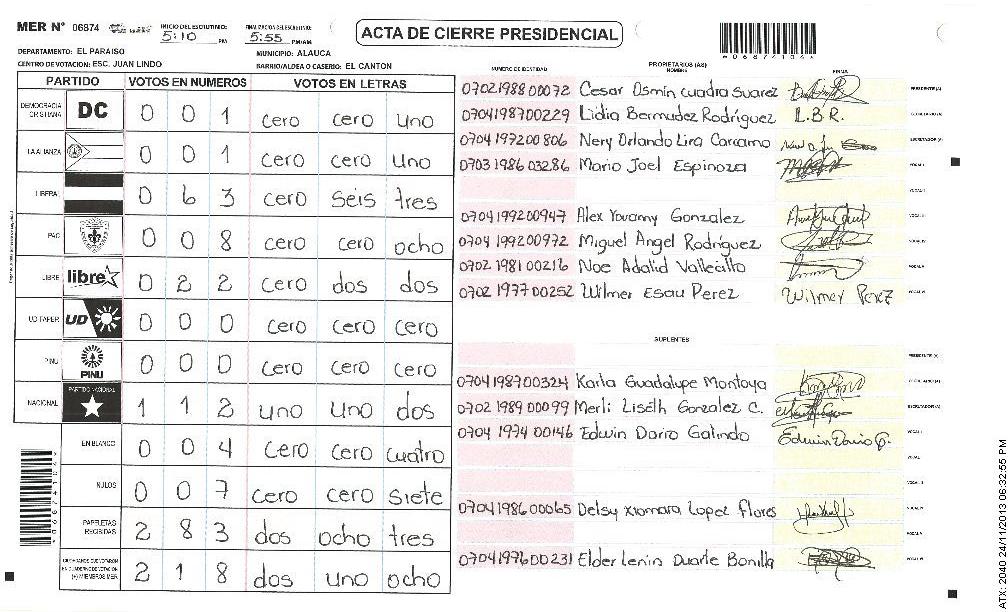 MER N° 06874 INICIO DEL ESCRUTINIO: 5:10 PM FINALIZACION DEL ESCRUTINIO: 5:55 PM/AM
ACTA DE CIERRE PRESIDENCIAL
*06874104*
DEPARTAMENTO: EL PARAISO MUNICIPIO: ALAUCA
CENTRO DE VOTACION: ESC. JUAN LINDO BARRIO/ALDEA O CASERIO: EL CANTON
PARTIDO VOTOS EN NUMEROS VOTOS EN LETRAS
DEMOCRACIA CRISTIANA DC 0 0 1 cero cero uno
LA ALIANZA 0 0 1 cero cero uno
LIBERAL 0 6 3 cero seis tres
PAC 0 0 8 cero cero ocho
LIBRE libre 0 2 2 cero dos dos
UD FAPER UD 0 0 0 cero cero cero
PINU PINU 0 0 0 cero cero cero
NACIONAL PARTIDO NACIONAL 1 1 2 uno uno dos
EN BLANCO 0 0 4 cero cero cuatro
NULOS 0 0 7 cero cero siete
PAPELETAS RECIBIDAS 2 8 3 dos ocho tres
CIUDADANOS QUE VOTARON EN CUADERNO DE VOTACION (+) MIEMBROS MER 2 1 8 dos uno ocho
NUMERO DE IDENTIDAD PROPIETARIOS (AS) NOMBRE FIRMA
0702198800072 Cesar Osmin cuadra Suarez PRESIDENTE (A)
0704198700229 Lidia Bermudez Rodríguez L.B.R. SECRETARIO (A)
0704197200806 Nery Orlando Lira Carcamo ESCRUTADOR (A)
0703198603286 Mario Joel Espinoza VOCAL I
VOCAL II
0704199200947 Alex Yovanny Gonzalez VOCAL III
0704199200972 Miguel Angel Rodríguez VOCAL IV
0702198100216 Noe Adalid Vallecillo VOCAL V
0702197700252 Wilmer Esau Perez Wilmer Perez VOCAL VI
SUPLENTES
PRESIDENTE (A)
0704198700324 Karla Guadalupe Montoya SECRETARIO (A)
0702198900099 Merli Liseth Gonzalez C. ESCRUTADOR (A)
0704197400146 Edwin Dario Galindo Edwin Dario G. VOCAL I
VOCAL II
VOCAL III
0704198600065 Delsy xiomara Lopez flores VOCAL IV
VOCAL V
0704197600231 Elder Lenin Duarte Bonilla VOCAL VI
ATX: 2040 24/11/2013 06:32:55 PM